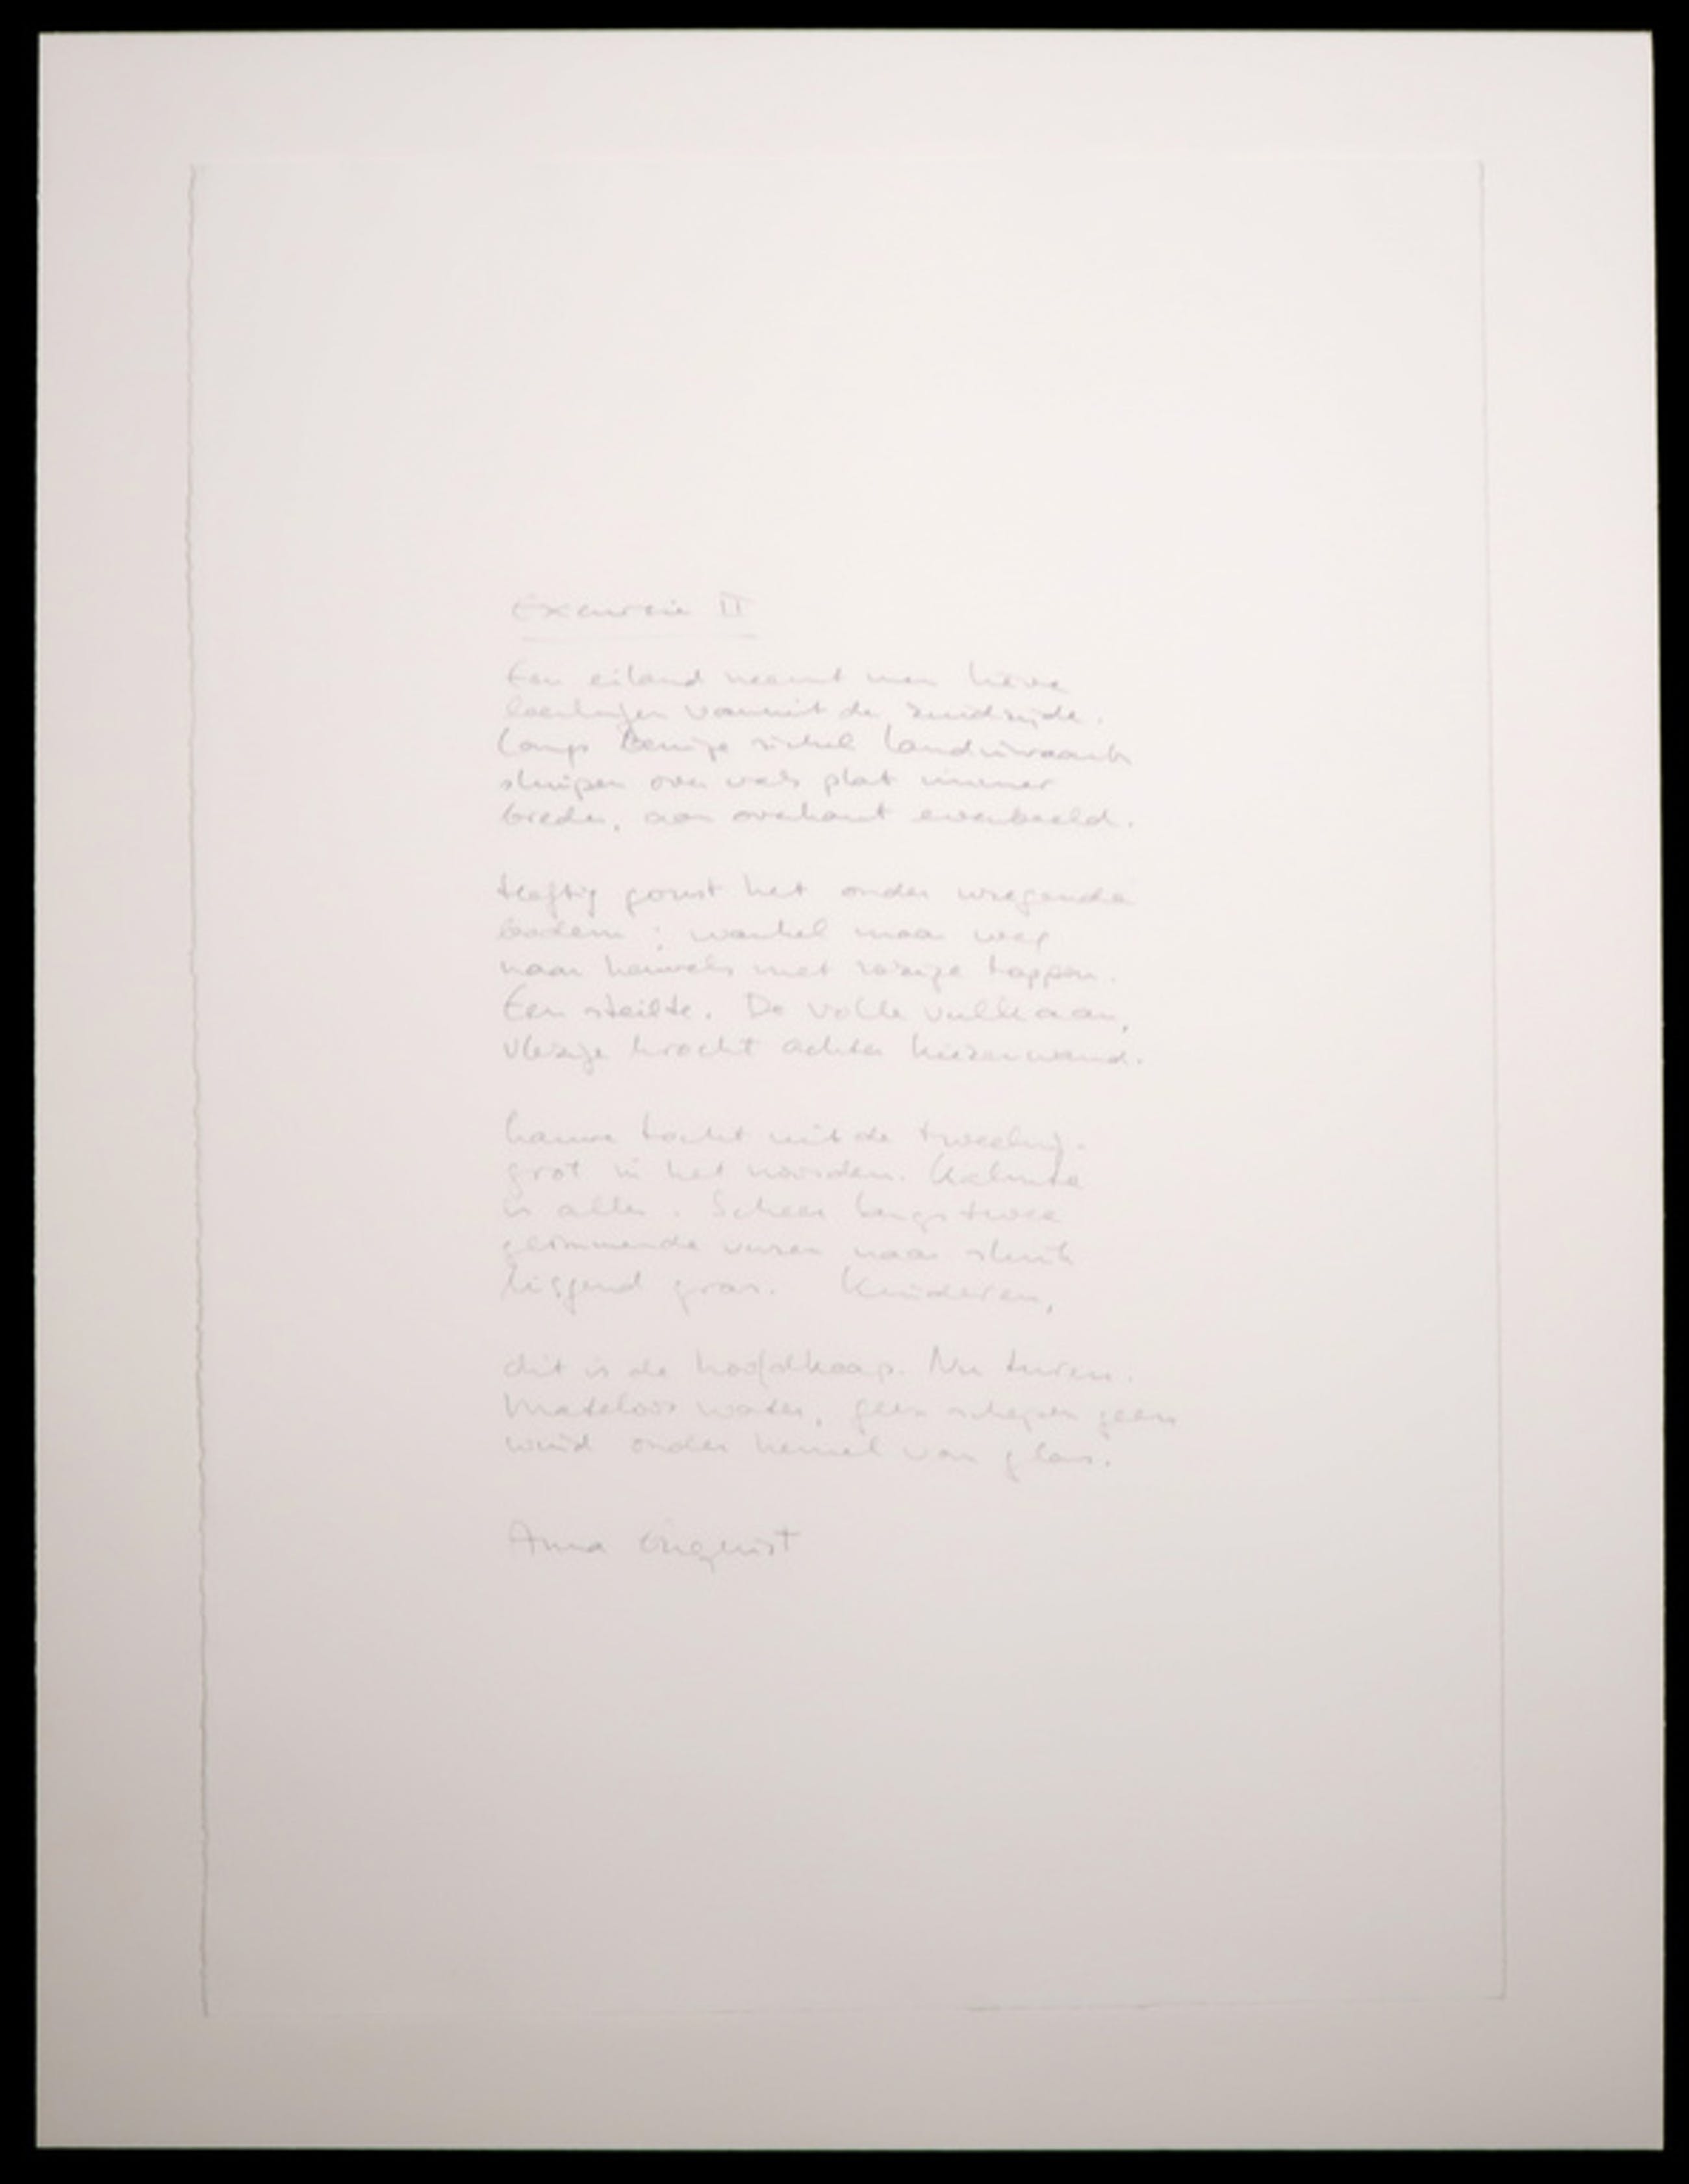 Excursie II
Een eiland neemt men lieve
leerlingen vanuit de zuidzijde.
Langs benige sikkel landinwaarts
sluipen over vals plat immer
breder, aan overkant evenbeeld.
Heftig gonst het onder wiegende
bodem; wankel maar weg
naar heuvels met rozige toppen.
Een steilte. De volle vulkaan,
vlezige krocht achter kiezenwand.
Lauwe tocht uit de tweeling-
grot in het noorden. Kalmte
is alles. Scheer langs twee
glimmende vuren naar sluik
liggend gras. Kinderen,
dit is de hoofdkaap. Nu turen.
Mateloos water, geen schepen geen
wind onder hemel van glas.
Anna Enquist